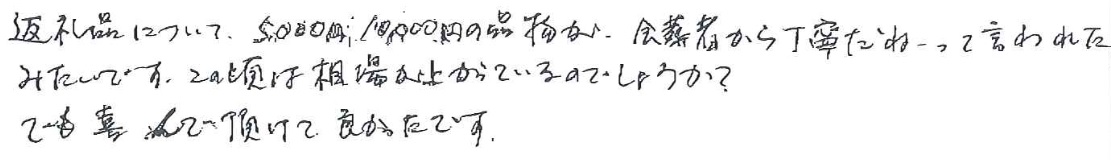 返礼品について、5000円、10,000円の品物が、会葬者から丁寧だねーって言われた
みたいです。この頃は相場が上がっているのでしょうか？
でも喜んで頂けて良かったです。